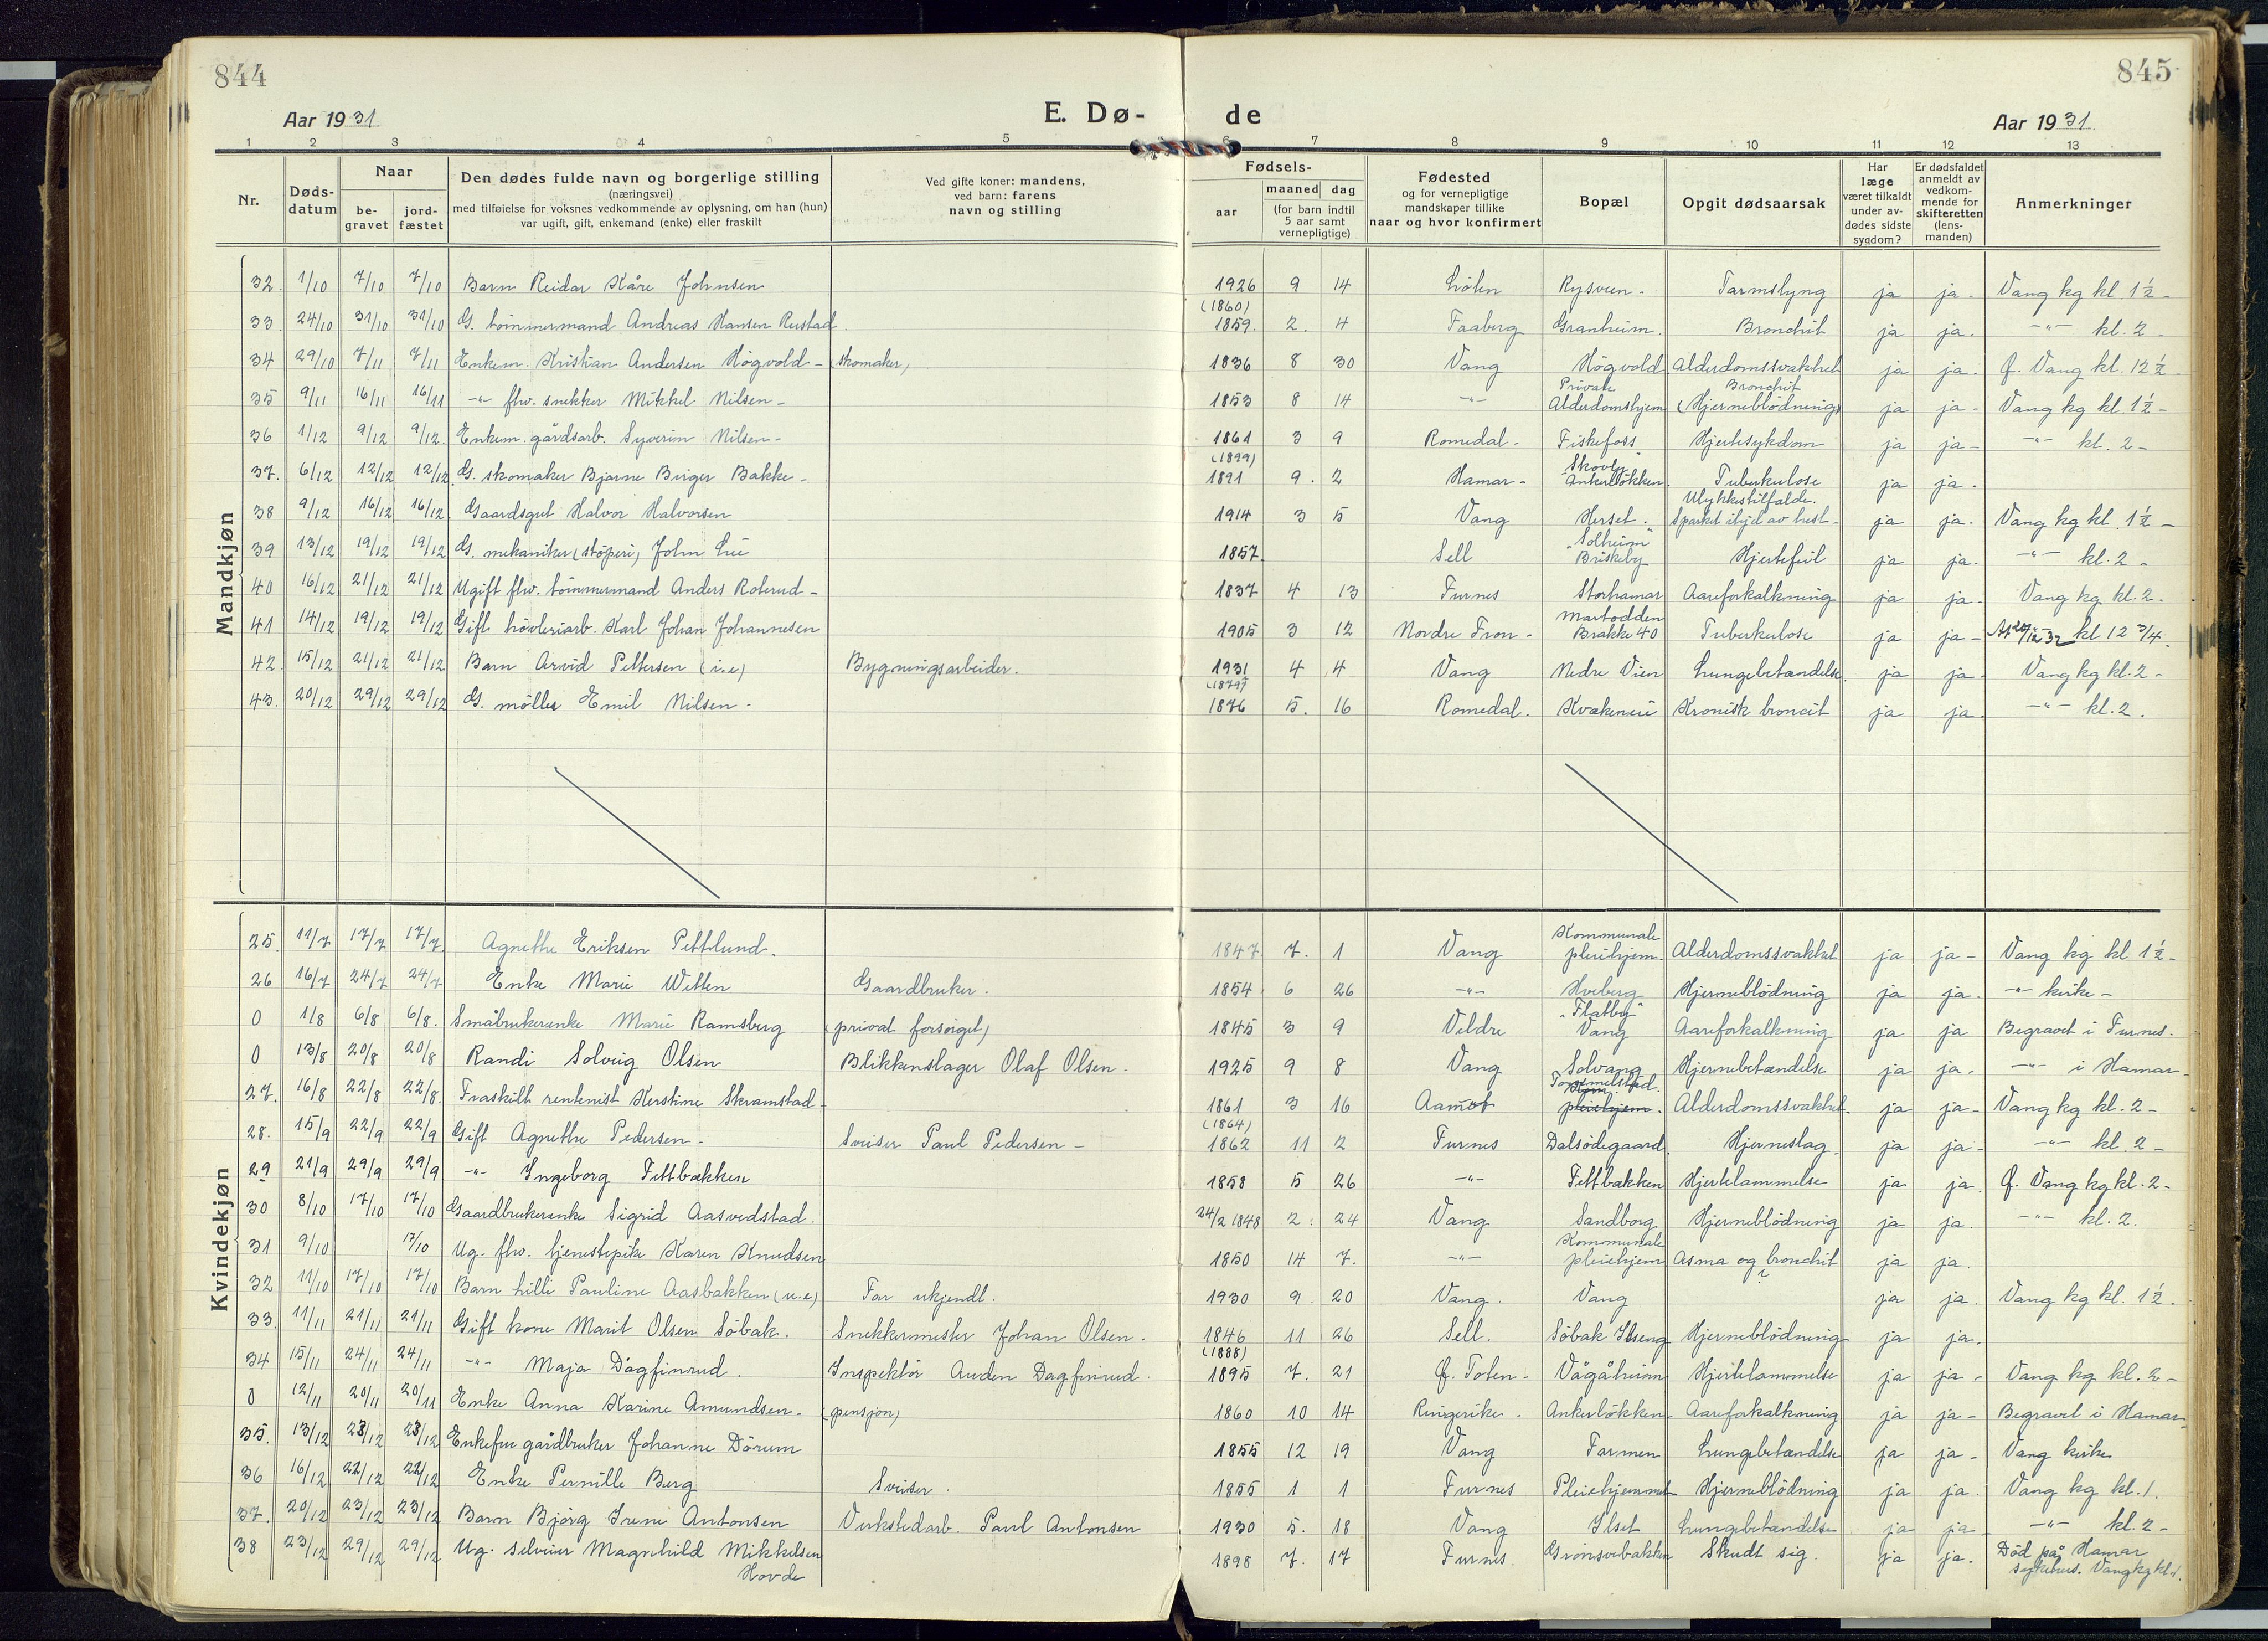 844
845
Aar 1931
E. Dø-
de
Aar 1931
1 2 3 4 5 6 7 8 9 10 11 12 13
Nr.
Døds-
datum
Naar
be-
gravet
jord-
fæstet
Den dødes fulde navn og borgerlige stilling
(næringsvei)
med tilføielse for voksnes vedkommende av oplysning, om han (hun)
var ugift, gift, enkemand (enke) eller fraskilt
Ved gifte koner: mandens,
ved barn: farens
navn og stilling
Fødsels-
aar
maaned dag
(for barn indtil
5 aar samt
vernepligtige)
Fødested
og for vernepligtige
mandskaper tillike
naar og hvor konfirmert
Bopæl
Opgit dødsaarsak
Har
læge
været tilkaldt
under av-
dødes sidste
sygdom?
Er dødsfaldet
anmeldt av
vedkom-
mende for
skifteretten
(lens-
manden)
Anmerkninger
Mandkjøn
32. 1/10 7/10 7/10 Barn Reidar Kåre Johnsen 1926 9 14 Löten Rysveen - Tarmslyng ja ja - Vang kg kl. 1½ -
(1860)
33 24/10 31/10 31/10 G. tömmermand Andreas Hansen Rustad. 1859. 2. 4 Faaberg Granheim. Bronchit ja ja. -"- kl. 2 -
34 29/10 7/11 7/11 Enkem. Kristian Andersen Högvold - (skomaker) 1836 8 30 Vang Högvold Alderdomssvakhet ja ja. Ø. Vang kl. 12½ -
Private Bronchit
35 9/11 16/11 16/11 -"- fhv. snekker Mikkel Nilsen - 1853 8 14 -"- Alderdomshjem (Hjerneblödning) ja ja - Vang kg kl. 1½ -
36 1/12 9/12 9/12. Enkem. gårdsarb. Syverin Nilsen - 1861 3 9 Romedal - Fiskefoss Hjertesykdom ja ja - -"- kl. 2 -
(1899) Skovly
37. 6/12 12/12 12/12. G. skomaker Bjarne Birger Bakke - 1891 9. 2 Hamar - Ankerlökken. Tuberkulose ja ja.
Ulykkestilfælde.
38 9/12 16/12 16/12. Gaardsgut Halvor Halvorsen 1914 3 5 Vang Herset. Sparket ihjel av hest - ja ja. Vang kg kl. 1½ -
"Solheim"
39 13/12 19/12 19/12 G. mekaniker (stöperi) John Lie 1857. Sell Briskeby Hjertefeil ja ja. -"- kl. 2 -
40 16/12 21/12 21/12 Ugift fhv. tömmermand Anders Roterud - 1837 4 13 Furnes Storhamar Aareforkalkning ja ja - Vang kg kl. 2 -
Martodden
41 14/12 19/12 19/12 Gift hövleriarb. Karl Johan Johannesen 1905 3 12 Nordre Fron - Brakke 40 Tuberkulose ja ja - kl 12 3/4.
42. 15/12 21/12 21/12 Barn Arvid Pettersen (i.e) Bygningsarbeider. 1931 4 4 Vang Nedre Vien Lungebetændelse. ja ja - Vang kg kl. 2 -
(1879)
43. 20/12 29/12 29/12 G. möller Emil Nilsen - 1876 5. 16 Romedal. Kvækeneie Kronisk broncit ja ja. -"- kl. 2.
Kvindekjøn
Kommunale
25. 11/7 17/7 17/7. Agnethe Eriksen Pettlund. 1847 7. 1 Vang pleiehjem. Alderdomssvakhet ja ja - Vang kg kl 1½ -
26 16/7 24/7 24/7 Enke Marie Witten Gaardbruker. 1854 6 26 -"- Hveberg Hjerneblödning ja ja. -"- kirke -
"Flatby"
0 1/8 6/8 6/8. Småbrukerenke Marie Ramsberg (privat forsörget) 1845 3 9 Veldre Vang Aareforkalkning ja ja Begravet i Furnes.
0 13/8 20/8 20/8 Randi Solveig Olsen Blikkenslager Olaf Olsen - 1925 9 8 Vang Solvang Hjernebetændelse ja ja. -"- i Hamar -
Tommelstad.
27. 16/8 22/8 22/8. Fraskilt rentenist Kerstine Skramstad - 1861 3 16 Aamot pleiehjem. Alderdomssvakhet. ja ja - Vang kg kl. 2 -
(1864)
28. 15/9 22/9 22/9 Gift Agnethe Pedersen - Sveiser Paul Pedersen - 1862 11 2 Furnes Dalsödegaard. Hjerneslag ja ja - -"- kl. 2 -
29 21/9 29/9 29/9 -"- Ingeborg Fettbakken 1858 5 26 -"- Fettbakken Hjertelammelse ja ja. Ø. Vang kg kl. 2 -
30 8/10 17/10 17/10 Gaardbrukerenke Sigrid Aasvedstad. 24/2 1848 2. 24 Vang Sandborg Hjerneblödning ja ja. -"- kl. 2.
Kommunale
31 9/10 17/10 Ug. fhv. tjenestepike Karen Knudsen 1850 14 7. -"- pleiehjem Asma og bronchit ja ja.
32 11/10 17/10 17/10 Barn Lilli Pauline Aasbakken (u.e) Far ukjendt. 1930 9. 20 Vang. Vang ? ja ja. Vang kg kl. 1½.
33. 11/11 21/11 21/11 Gift kone Marit Olsen Söbak. Snekkermester Johan Olsen. 1846 11 26 Sell. Söbak Ilseng Hjerneblödning ja ja.
(1888)
34 15/11 24/11 24/11 -"- Maja Dagfinrud. Inspektör Auden Dagfinrud. 1895 7. 21 Ø. Toten - Vågåheim Hjertelammelse ja ja - Vang kg kl. 2 -
0 12/11 20/11 20/11 Enke Anna Karine Amundsen - (pensjon) 1860 10 14 Ringerike - Ankerlökken Aareforkalkning ja ja - Begravet i Hamar
35. 13/12 23/12 23/12 Enkefru gårdbruker Johanne Dörum 1855 12 19 Vang Farmen Lungebetændelse ja ja - Vang kirke
36 16/12 22/12 22/12 Enke Pernille Berg Sveiser. 1855 1 1 Furnes Pleiehjemmet Hjerneblödning ja ja. Vang kg kl. 1.
37. 20/12 23/12 23/12 Barn Björg Irene Antonsen Verkstedarb. Paul Antonsen 1930 5. 18 Vang Ilset Lungebetændelse ja ja - -"- kl. 2 -
38 23/12 29/12 29/12 Ug. Magnhild Mikkelsen 1898 7. 17 Furnes. Grönsvebakken Skudt sig. ja ja. Död på Hamar
Hovde sykehus. Vang kg kl 1.